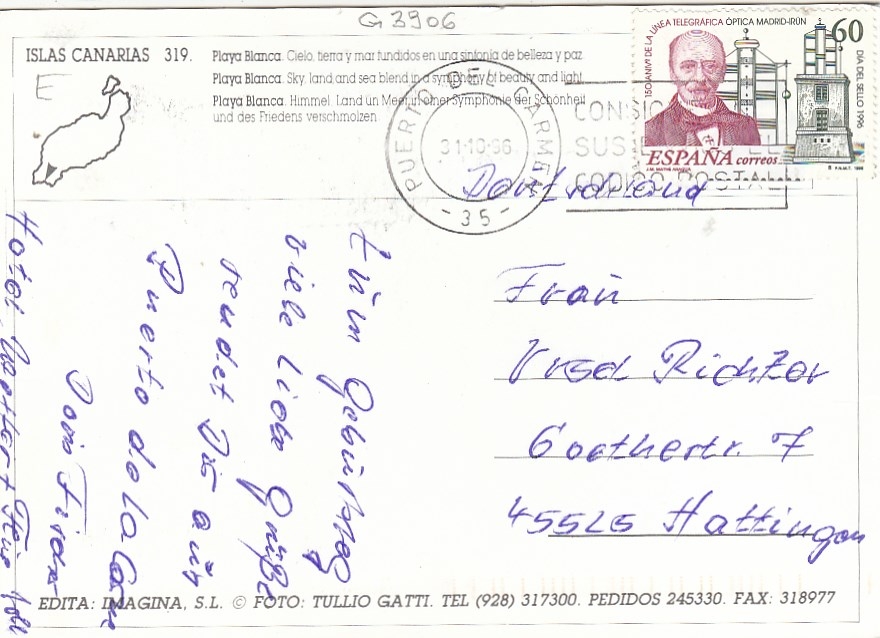 G3906
ISLAS CANARIAS 319.
E
Playa Blanca. Cielo, tierra y mar fundidos en una sintonia de belleza y paz
Playa Blanca. Sky, land and sea blend in a symphony of beauty and light
Playa Blanca. Himmel Land un Meer in einer Symphonie der Schönheit
und des Friedens verschmolzen
150 ANIV. DE LA LÍNEA TELEGRÁFICA ÓPTICA MADRID-IRÚN
60
DIA DEL SELLO 1996
ESPAÑA correos
PUERTO DEL CARMEN
31-10-96
- 35 -
CONSIG
SUS
CODIGO POSTAL
Frau
Ursel Richter
Goethestr. 7
45525 Hattingen
Zum Geburtstag
viele liebe Grüße
sendet Dir aus
Puerto de la
Doris
Hotel, Wetter +
EDITA: IMAGINA, S.L. © FOTO: TULLIO GATTI. TEL (928) 317300. PEDIDOS 245330. FAX: 318977